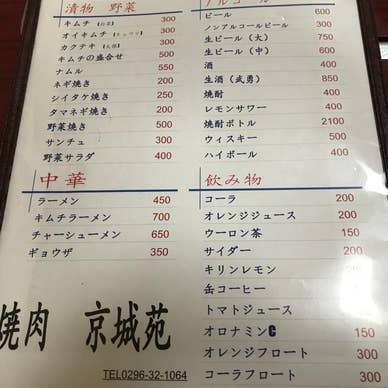 漬物 野菜
キムチ【白菜】 300
オイキムチ【キュウリ】 300
カクテキ【大根】 300
キムチの盛合せ 500
ナムル 550
ネギ焼き 200
シイタケ焼き 200
タマネギ焼き 200
野菜焼き 500
サンチュ 300
野菜サラダ 400
中華
ラーメン 450
キムチラーメン 700
チャーシューメン 650
ギョウザ 350
焼肉 京城苑
TEL0296-32-1064
アルコール
ビール 600
ノンアルコールビール 300
生ビール(大) 750
生ビール(中) 600
酒 400
生酒(武勇) 850
焼酎 400
レモンサワー 400
焼酎ボトル 2100
ウィスキー 500
ハイボール 400
飲み物
コーラ 200
オレンジジュース 200
ウーロン茶 150
サイダー 200
キリンレモン 200
缶コーヒー
トマトジュース
オロナミンC 150
オレンジフロート 300
コーラフロート 300